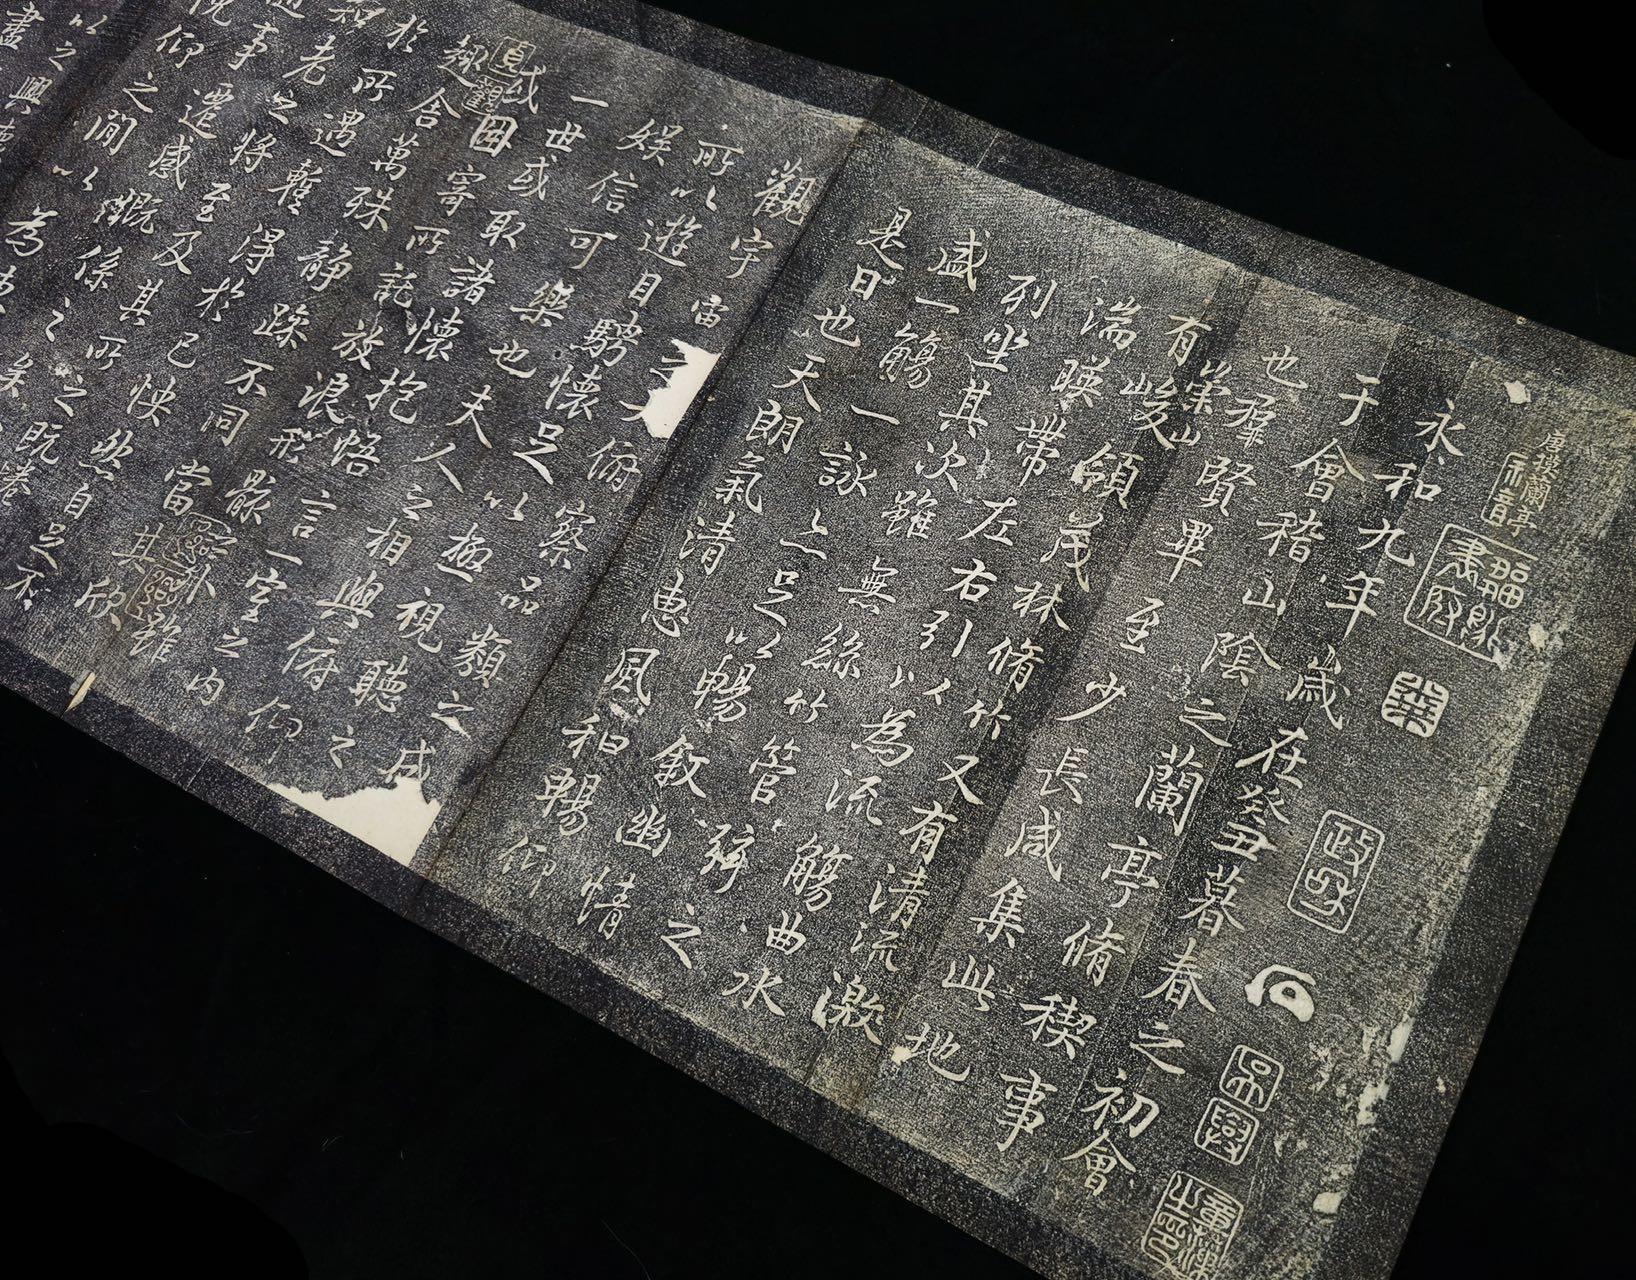 唐摸蘭亭
永和九年歲在癸丑暮春之初會
于會稽山陰之蘭亭脩稧事
也羣賢畢至少長咸集此地
有崇山峻領茂林脩竹又有清流激
湍暎帶左右引以為流觴曲水
列坐其次雖無絲竹管弦之
盛一觴一詠亦足以暢敘幽情
是日也天朗氣清惠風和暢仰
觀宇宙之大俯察品類之盛
所以遊目騁懷足以極視聽之
娛信可樂也夫人之相與俯仰
一世或取諸懷抱悟言一室之內
或因寄所託放浪形骸之外雖
趣舍萬殊靜躁不同當其欣
於所遇暫得於己快然自足不
老之將至及其所之既惓
事遷感慨係之矣
仰之間以為
以之興